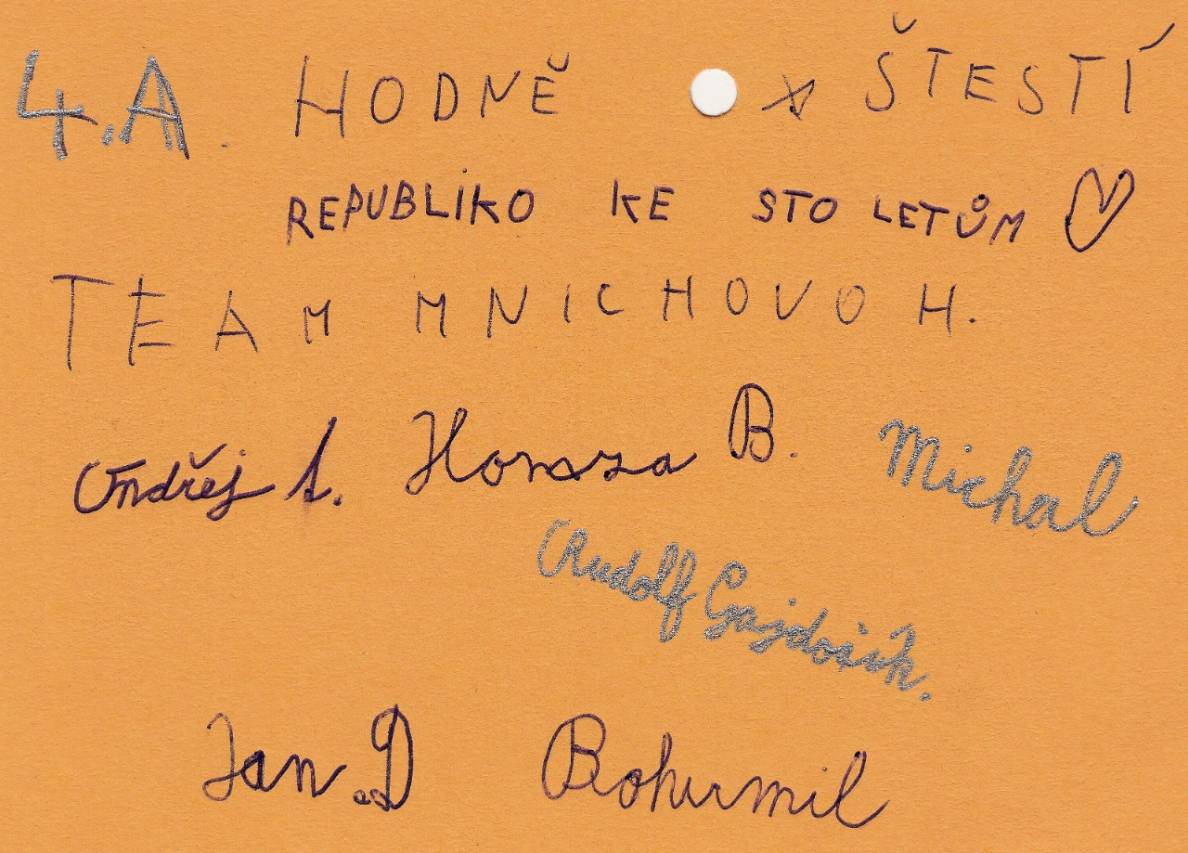 4.A. HODNĚ ŠTESTÍ
REPUBLIKO KE STO LETŮM
TEAM MNICHOVO H.
Ondřej A. Honza B. Michal
Rudolf Gajdošík.
Jan.D Bohumil